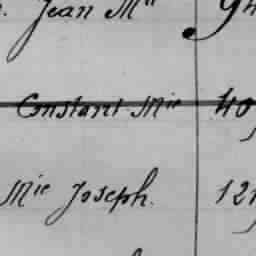 Jean Mie 94
Constant Mie 40
Mie Joseph. 12